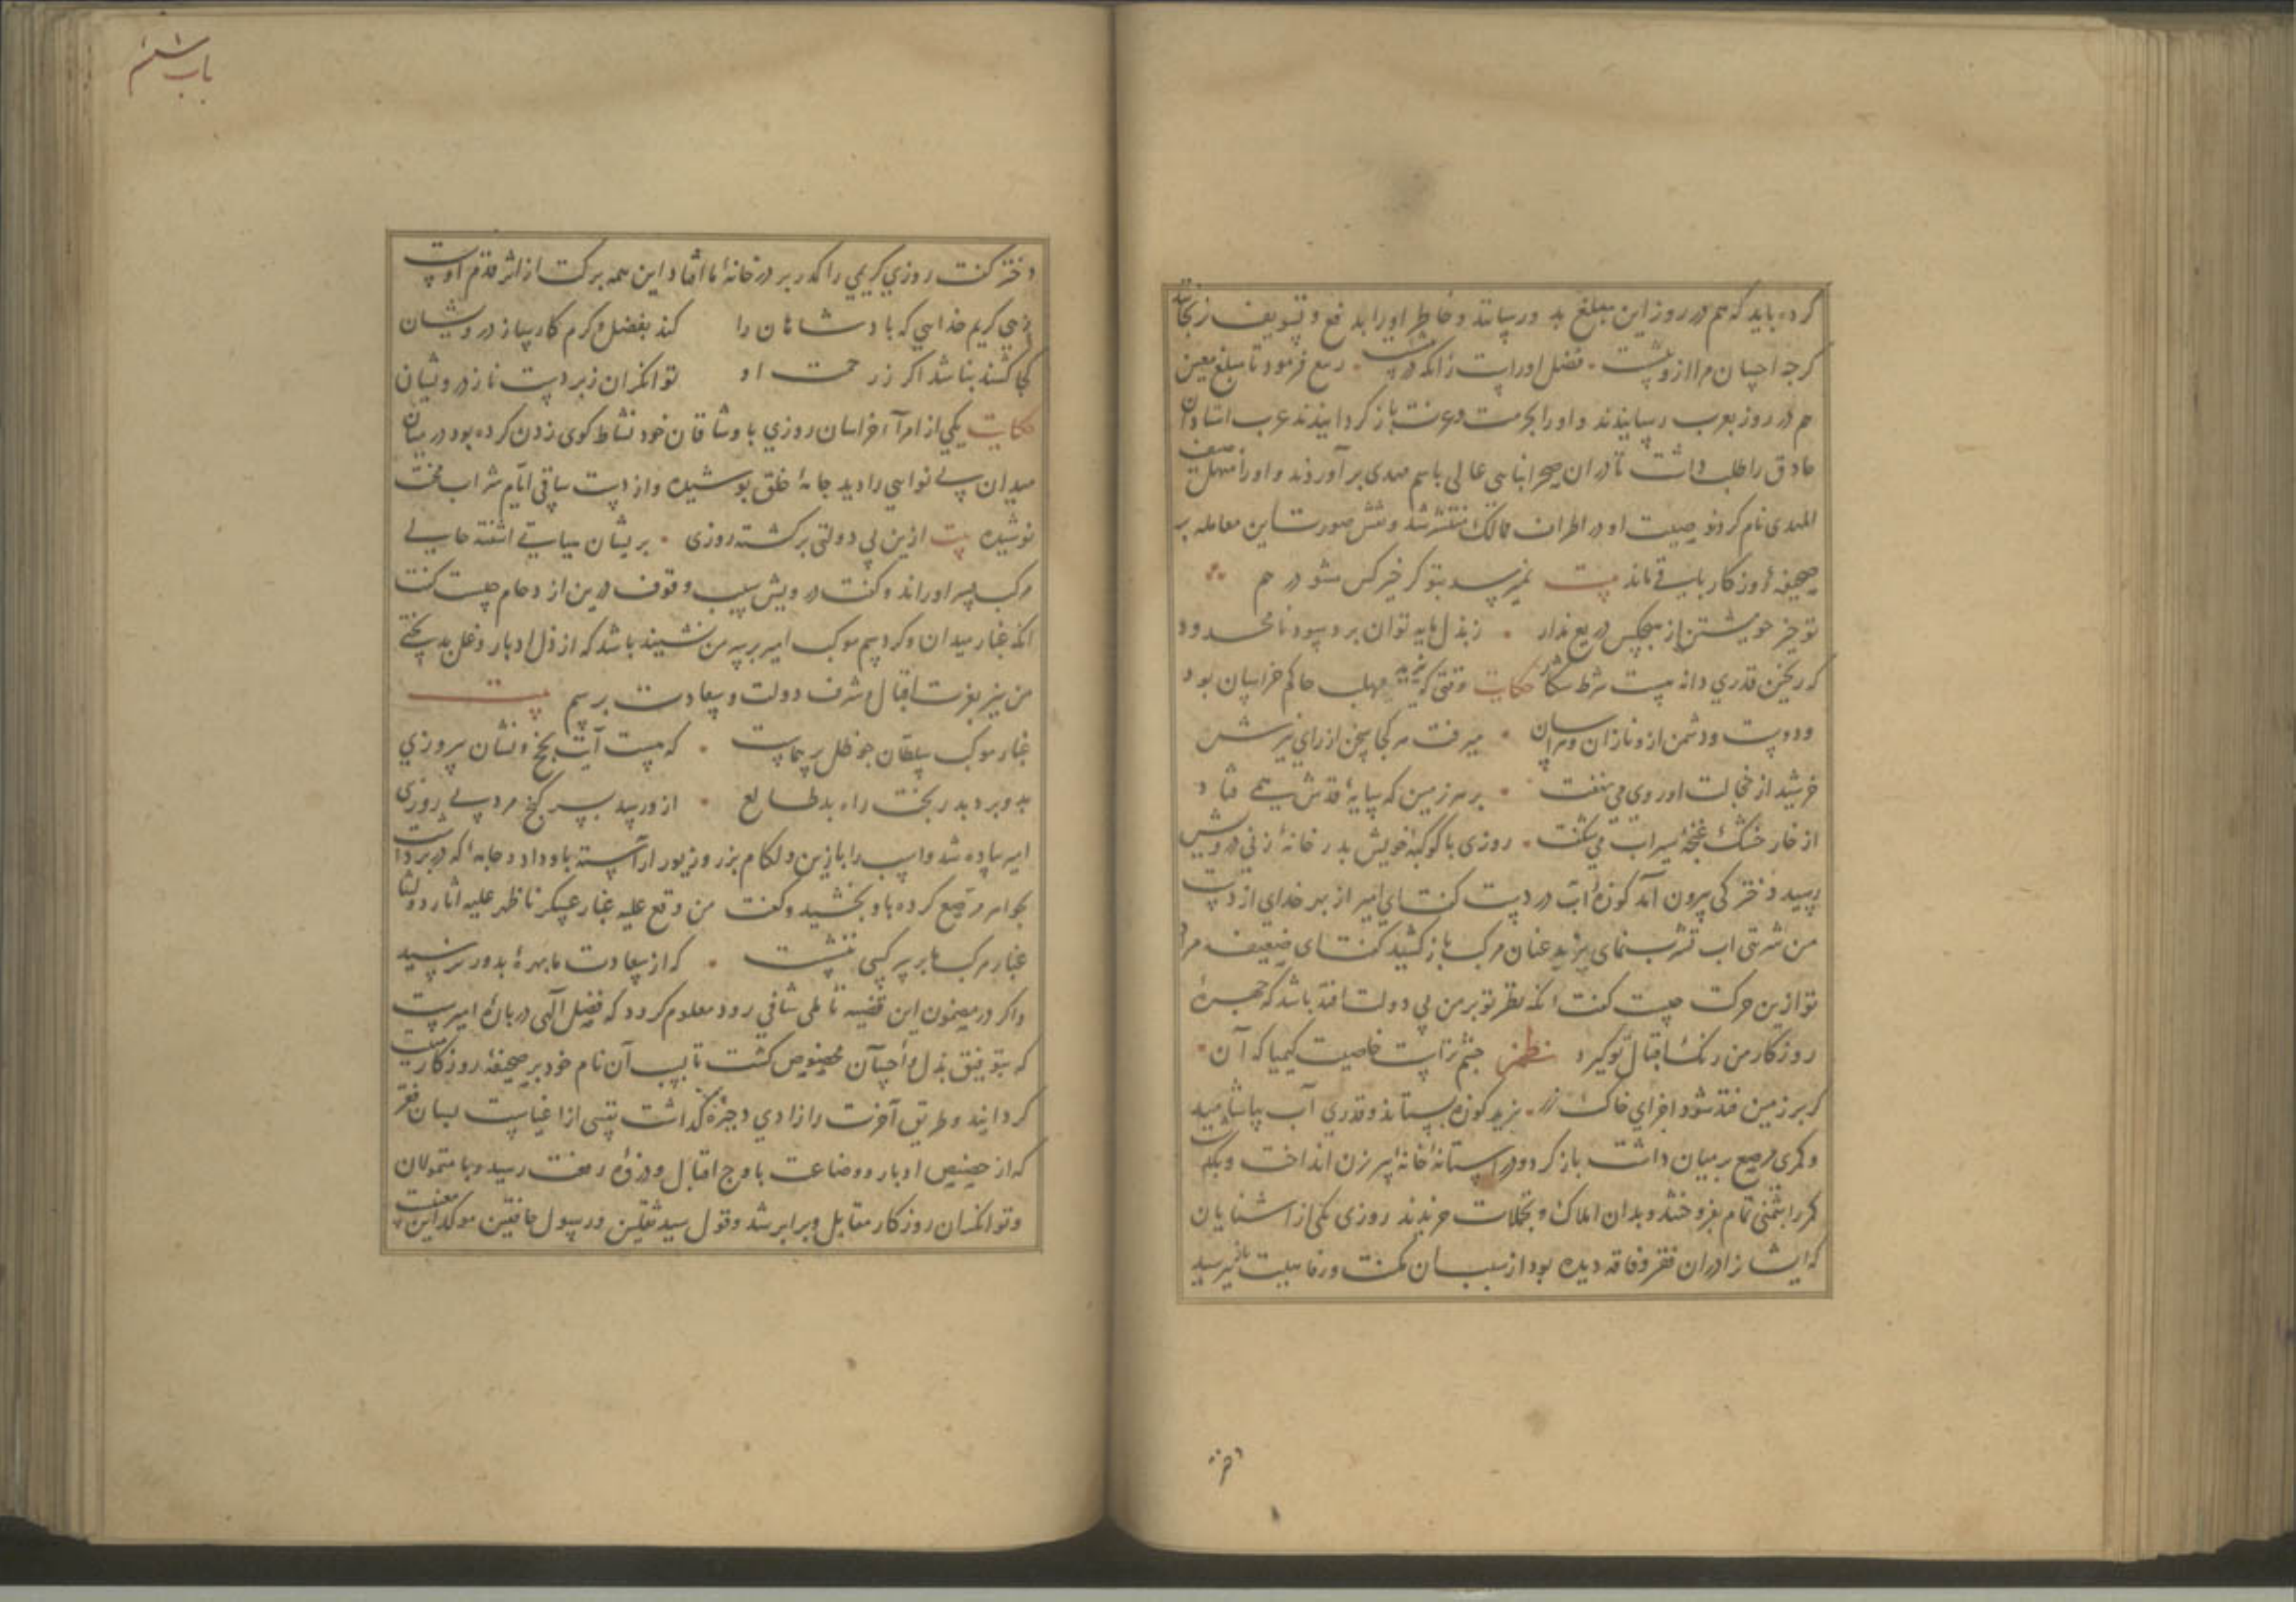 کرده باید که هم در روز این مبلغ بدو رسانند و خاطر او را بدفع و تسویف نرنجانند
کرچه احسان مرا از و پیشست . فضل او راست زانکه در پیشست . ربیع فرمود تا مبلغ معین
هم در روز بعرب رسانیدند و او را بحرمت و عزت باز کردانیدند عرب استادان
حاذق را طلب داشت تا دران صحرا بنایی عالی باسم مهدی بر آوردند و او را
المهدی نام کردند و صیت او در اطراف ممالک منتشر شد و نقش صورت این معامله بر
صحیفه روزکار باقی ماند بیت نمیرسد بتو کر خیر کس مشو در هم
تو خیر خویشتن از هیچکس دریغ مدار . ز بذل مایه توان برد سود نامحدود
که ریختن قدری دانه هست شرط شکار حکایت وقتی که یزید مهلب حاکم خراسان بود
و دوست و دشمن ازو نازان و هراسان . میرفت هر کجا سخن از رای نیرش
خورشید از خجالت او روی می نهفت . بر هر زمین که سایه قدش همی فتاد
از خار خشک غنچه سیراب می شکفت . روزی با کوکبه خویش بدر خانه زنی درویش
رسید دخترکی بیرون آمد کوزه آب در دست کفت ای امیر از بهر خدای از دست
من شربتی اب تشرب نمای یزید عنان مرکب باز کشید کفت ای ضعیفه مراد
تو ازین حرکت چیست کفت انکه نظر تو بر من بی دولت افتد باشد که چهره
روزکار من رنک اقبال تو کیرد نظم چشم تراست خاصیت کیمیا که آن .
کر بر زمین فتد شود اجزای خاک زر . یزید کوزه بستاند و قدری آب بیاشامید
و کمری مرصع بر میان داشت باز کرد و در آستانه خانه پیر زن انداخت و برفت
کمر را بثمنی تمام بفروختند و بدان املاک و تجملات خریدند روزی یکی از اشنایان
که ایشانرا دران فقر و فاقه دیده بود از سبب آن مکنت و رفاهیت می پرسید
دختر
باب ششم
دختر کفت روزی کریمی را کذر بر در خانه ما افتاد این همه برکت از اثر قدم اوست
زهی کریم خدایی که پادشاهان را کند بفضل و کرم کارساز درویشان
کجا کشند بنا شد اکر ز رحمت او توانکران زبردست ناز درویشان
حکایت یکی از امرآء خراسان روزی با وشاقان خود نشاط کوی زدن کرده بود در میان
میدان بی نوایی را دید جامه خلق پوشیده و از دست ساقی ایّام شراب محنت
نوشیده بیت ازین بی دولتی برکشته روزی . پریشان سیاستی اشفته حالی
مرکب پس او راند و کفت درویش سبب وقوف درین ازدحام چیست کفت
انکه غبار میدان و کرد سم موکب امیر بر سر من نشیند باشد که از ذل ادبار و غل بدبختی
من نیز بعزت اقبال و شرف دولت و سعادت برسم بیت
غبار موکب سلطان چو ظل پر هماست . که هست آیت بخ و نشان پیروزی
بدو برد بدر بخت راه بد طالع . ازو رسد بسر کنج مرد بی روزی
امیر پیاده شد و اسب را با زین و لکام بزر و زیور آراسته باو داد و جامه که در برداشت
بجواهر مرصع کرده باو بخشید و کفت من وقع علیه غبار عسکرنا ظهر علیه اثار دولتنا
غبار مرکب ما بر سر کسی ننشست . که از سعادت ما بهره بدو نرسید
و اکر در مضمون این قضیه تاملی شافی رود معلوم کردد که فضل الهی در باره امیرست
که بتوفیق بذل و احسان مخصوص کشت تا بسبب آن نام خود بر صحیفه روزکار مثبت
کردانید و طریق آخرت را زادی و ذخیره کذاشت نه از اغناست لسان فقر
که از حضیض ادبار و وضاعت باوج اقبال و ذروه رفعت رسید و با متمولان
و توانکران روزکار مقابل و برابر شد و قول سید ثقلین و رسول خافقین موکد این